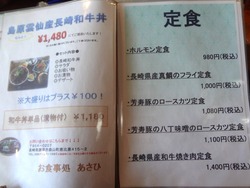 島原雲仙産長崎和牛丼
¥1,480(税込)
★セット内容★
長崎和牛丼
小鉢
お吸い物
お漬物
デザート
※大盛りはプラス¥100!
和牛丼単品(漬物付) ¥1,180
お食事処 あさひ
定食
・ホルモン定食
980円(税込)
・長崎県産真鯛のフライ定食
1,000円(税込)
・芳寿豚のロースカツ定食
1,080円(税込)
・芳寿豚の八丁味噌のロースカツ定食
1,100円(税込)
・長崎県産和牛焼き肉定食
1,400円(税込)